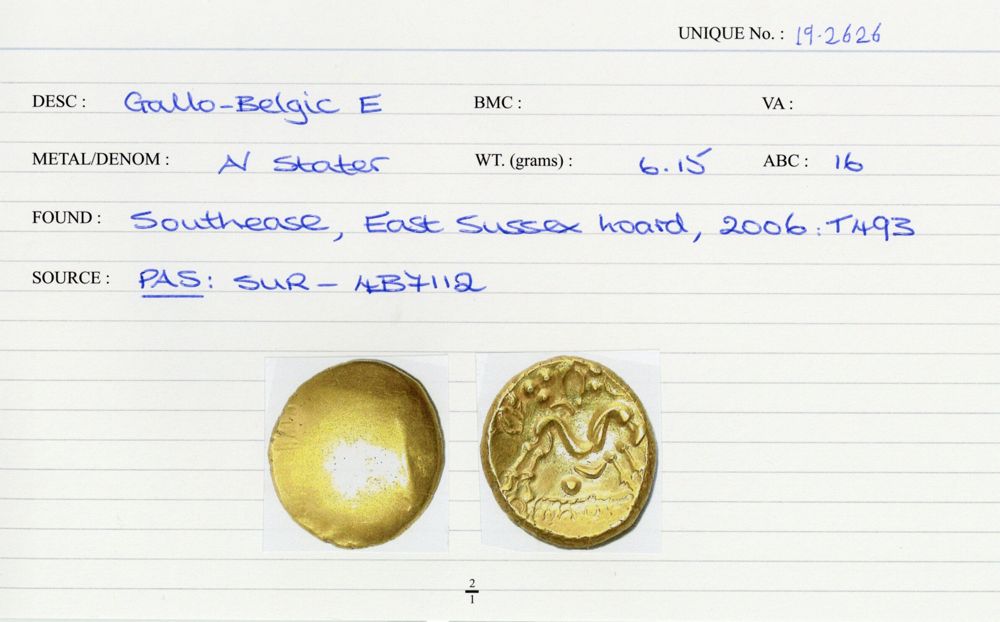 UNIQUE No. : 19.2626
DESC : Gallo-Belgic E BMC : VA :
METAL/DENOM : AV Stater WT. (grams) : 6.15 ABC : 16
FOUND : Southease, East Sussex hoard, 2006.T493
SOURCE : PAS: SUR-4B7112
2
1